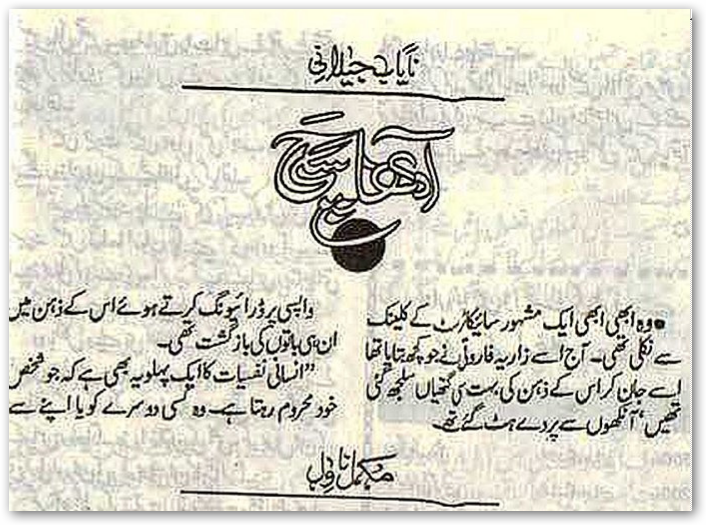 نایاب جیلانی
آدھا سچ
وہ ابھی ابھی ایک مشہور سائیکاٹرسٹ کے کلینک
سے نکلی تھی۔ آج اُسے زاریہ فاروقی نے جو کچھ بتایا تھا
اسے جان کر اس کے ذہن کی بہت سی گتھیاں سلجھ گئی
تھیں‘ آنکھوں سے پردے ہٹ گئے تھے۔
واپسی پر ڈرائیونگ کرتے ہوئے اس کے ذہن میں
ان ہی باتوں کی بازگشت تھی۔
”انسانی نفسیات کا ایک پہلو یہ بھی ہے کہ جو شخص
خود محروم رہتا ہے۔ وہ کسی دوسرے کو یا اپنے سے
مکمل ناول